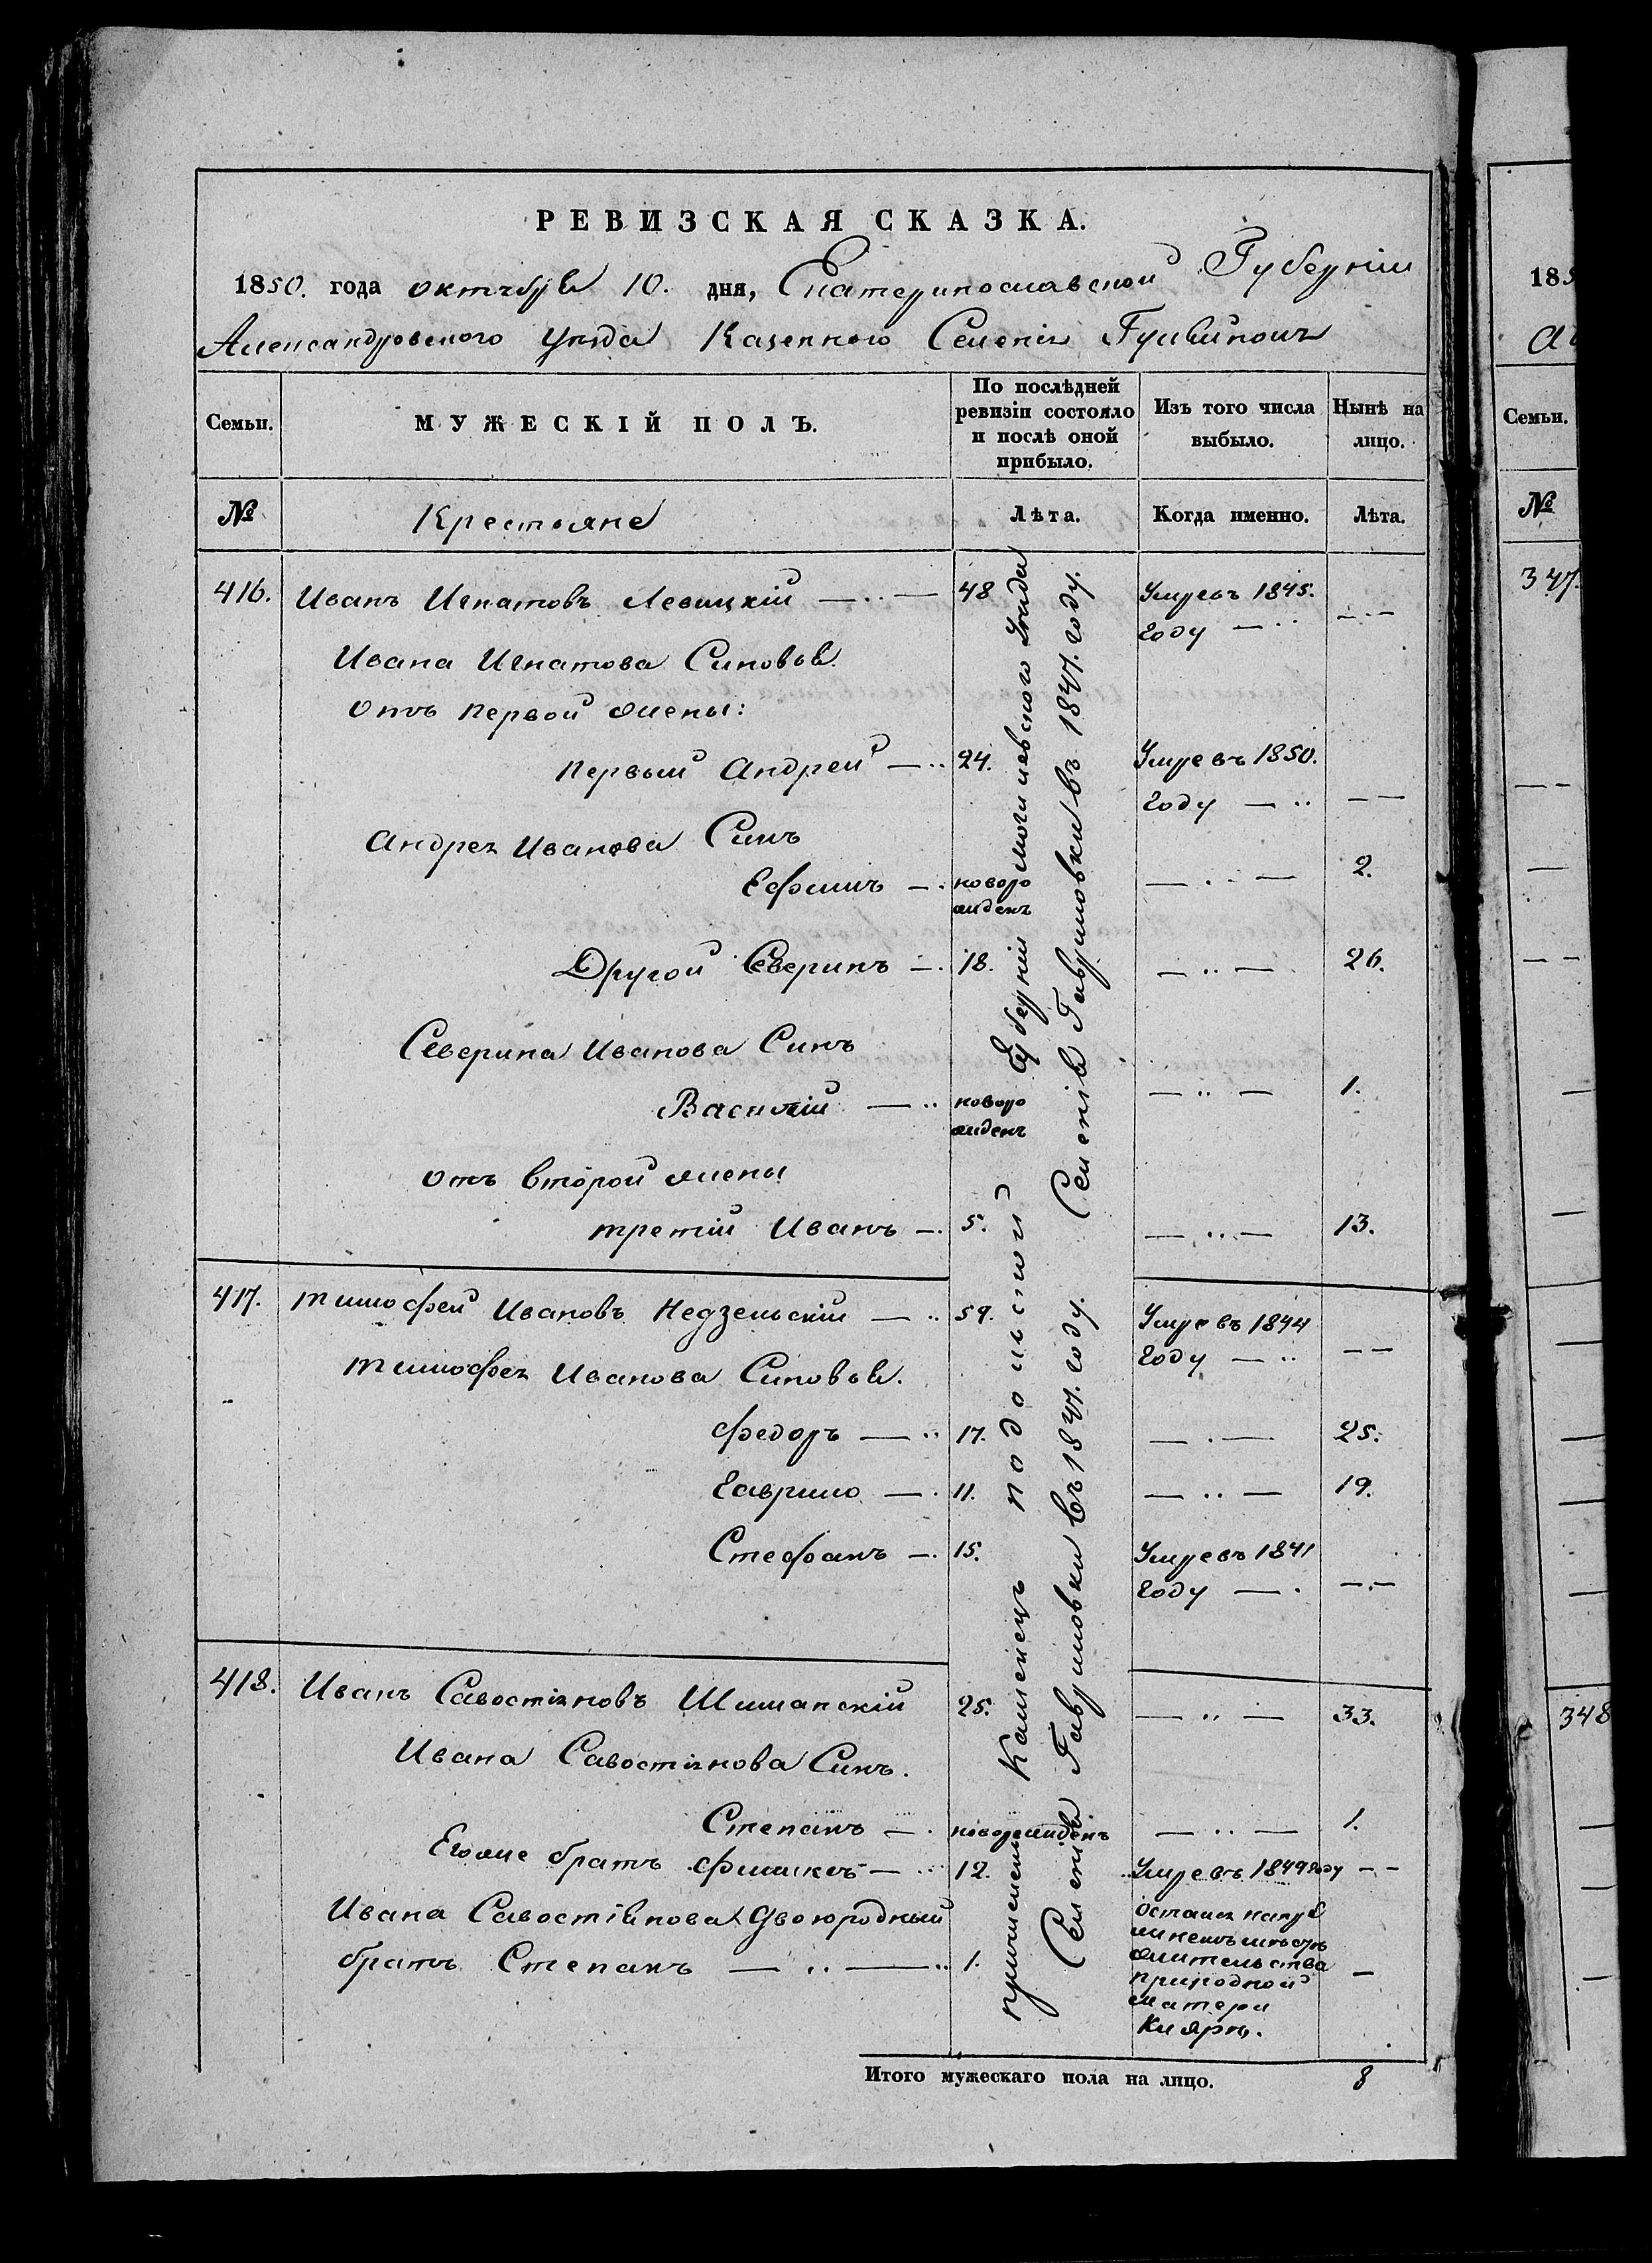 РЕВИЗСКАЯ СКАЗКА.
1850. года октября 10. дня, Екатеринославской Губерніи
Александровского Уѣзда Казенного Селенія
Семьи.
МУЖЕСКІЙ ПОЛЪ.
По послѣдней ревизіи состояло и послѣ оной прибыло.
Изъ того числа выбыло.
Нынѣ на лицо.
№
Крестьяне
Лѣта.
Когда именно.
Лѣта.
416. Иванъ Игнатовъ Левицкій — .. — 48 Умре въ 1845. году — .. — .. —
Ивана Игнатова Синовья
отъ первой жены:
первый Андрей — .. 24. Умре въ 1850. году — .. — —
Андрея Иванова Синъ
Ефимъ — . новорожденъ — .. — 2.
Другой Северинъ — . 18. — .. — 26.
Северина Иванова Синъ
Василій — .. новорожденъ — .. — 1.
отъ второй жены
третій Иванъ — . 5. — .. — 13.
417. Тимофей Ивановъ Недзельскій — .. 59. Умре въ 1844 году — .. — —
Тимофея Иванова Синовья.
Федоръ — .. 17. — . — 25.
Гаврило — . 11. — .. — 19.
Стефанъ — . 15. Умре въ 1841 году — . — . —
418. Иванъ Савостіяновъ Шиманскій 25. — .. — 33.
Ивана Савостіянова Синъ.
Степанъ — . новорожденъ — .. — 1.
Егоже братъ — .. 12. Умре въ 1849 году — —
Ивана Савостіянова Двоюродный
братъ Степанъ — .. — .. 1.
Остался на
жительства
природной
матери
—
причислены Каменецъ подольской Губерніи могилевского Уѣзда
Селенія въ 1847. году. Селенія въ 1847. году.
Итого мужескаго пола на лицо. 8
185
Семьи.
№
347.
348